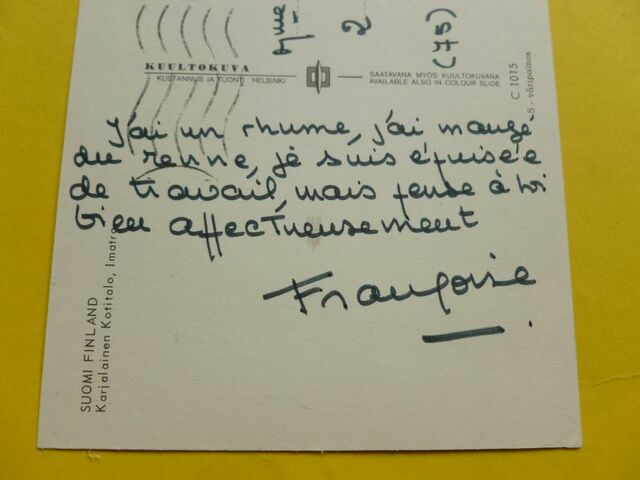 Mme
2
(75)
KUULTOKUVA
KUSTANNUS JA TUONTI HELSINKI
SAATAVANA MYÖS KUULTOKUVANA
AVAILABLE ALSO IN COLOUR SLIDE
C 1015
5. väripainos
J'ai un rhume, j'ai mangé
du renne, je suis épuisée
de travail, mais pense à toi
bien affectueusement
Françoise
SUOMI FINLAND
Karjalainen Kotitalo, Imatra